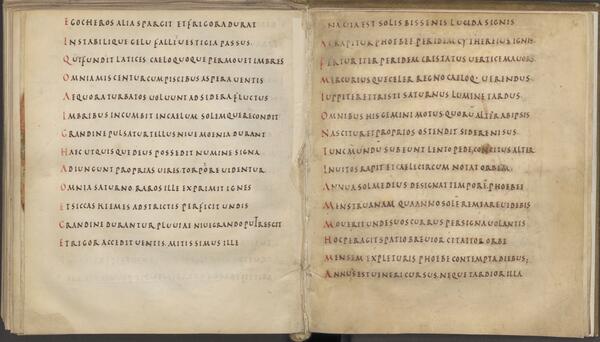 EGOCHEROS ALIA SPARGIT ET FRIGORA DURAT
INSTABILIQUE GELU FALLIT UESTIGIA PASSUS
QUI FUNDIT LATICES CAELOQUOQUE PERMOUET IMBRES
OMNIA MISCENTUR CUM PISCIBUS ASPERA UENTIS
AEQUORA TURBATOS UOLUUNT AD SIDERA FLUCTUS
IMBRIBUS INCUMBIT IN CAELUM SOLEMQUE RECONDIT
GRANDINE PULSATUR TELLUS NIUE MOENIA DURANT
HAEC UT QUISQUE DEUS POSSEDIT NUMINE SIGNA
ADIUNGUNT PROPRIAS UIRIS TORPORE UIDENTUR
OMNIA SATURNO RAROS ILLE EXPRIMIT IGNES
ET SICCAS HIEMES ADSTRICTIS PERFICIT UNDIS
GRANDINE DURANTUR PLUUIAI NIUE GRANDO PUTRESCIT
ET RIGOR ACCEDIT UENTIS MITISSIMUS ILLE
NACTA EST SOLIS BIS SENIS LUCIDA SIGNIS
ACRAPITUR PHOEBE PERIDEM CYTHEREIUS IGNIS
FERTUR ITER PERIDEM CRISTATUS UERTICE MAUORS
MERCURIUS QUE CELER REGNO CAELOQ: UERENDUS
IUPPITER ET TRISTI SATURNUS LUMINE TARDUS
OMNIBUS HIS GEMINI MOTUS QUORU ALTER AB IPSIS
NASCITUR ET PROPRIOS OSTENDIT SIDERE NISUS
TUNC MUNDU SUBEUNT LENTO PEDE CONCITUS ALTER
INUITOS RAPIT ET CAELI CIRCUM NOTAT ORBEM
ANNUA SOL MEDIUS DESIGNAT TEMPORE PHOEBE
MENSTRUA NAM QUA ANNO SOLE REMEARE UIDEBIS
MOUERIT UNDE SUOS CURRUS PER SIGNA UOLANTIS
HOC PERAGIT SPATIO BREUIOR CITATIOR ORBE
MENSEM EXPLETURIS PHOEBE CONTEMPTA DIEBUS;
ANNUS EST UENERI CURSUS NEQUE TARDIOR ILLA